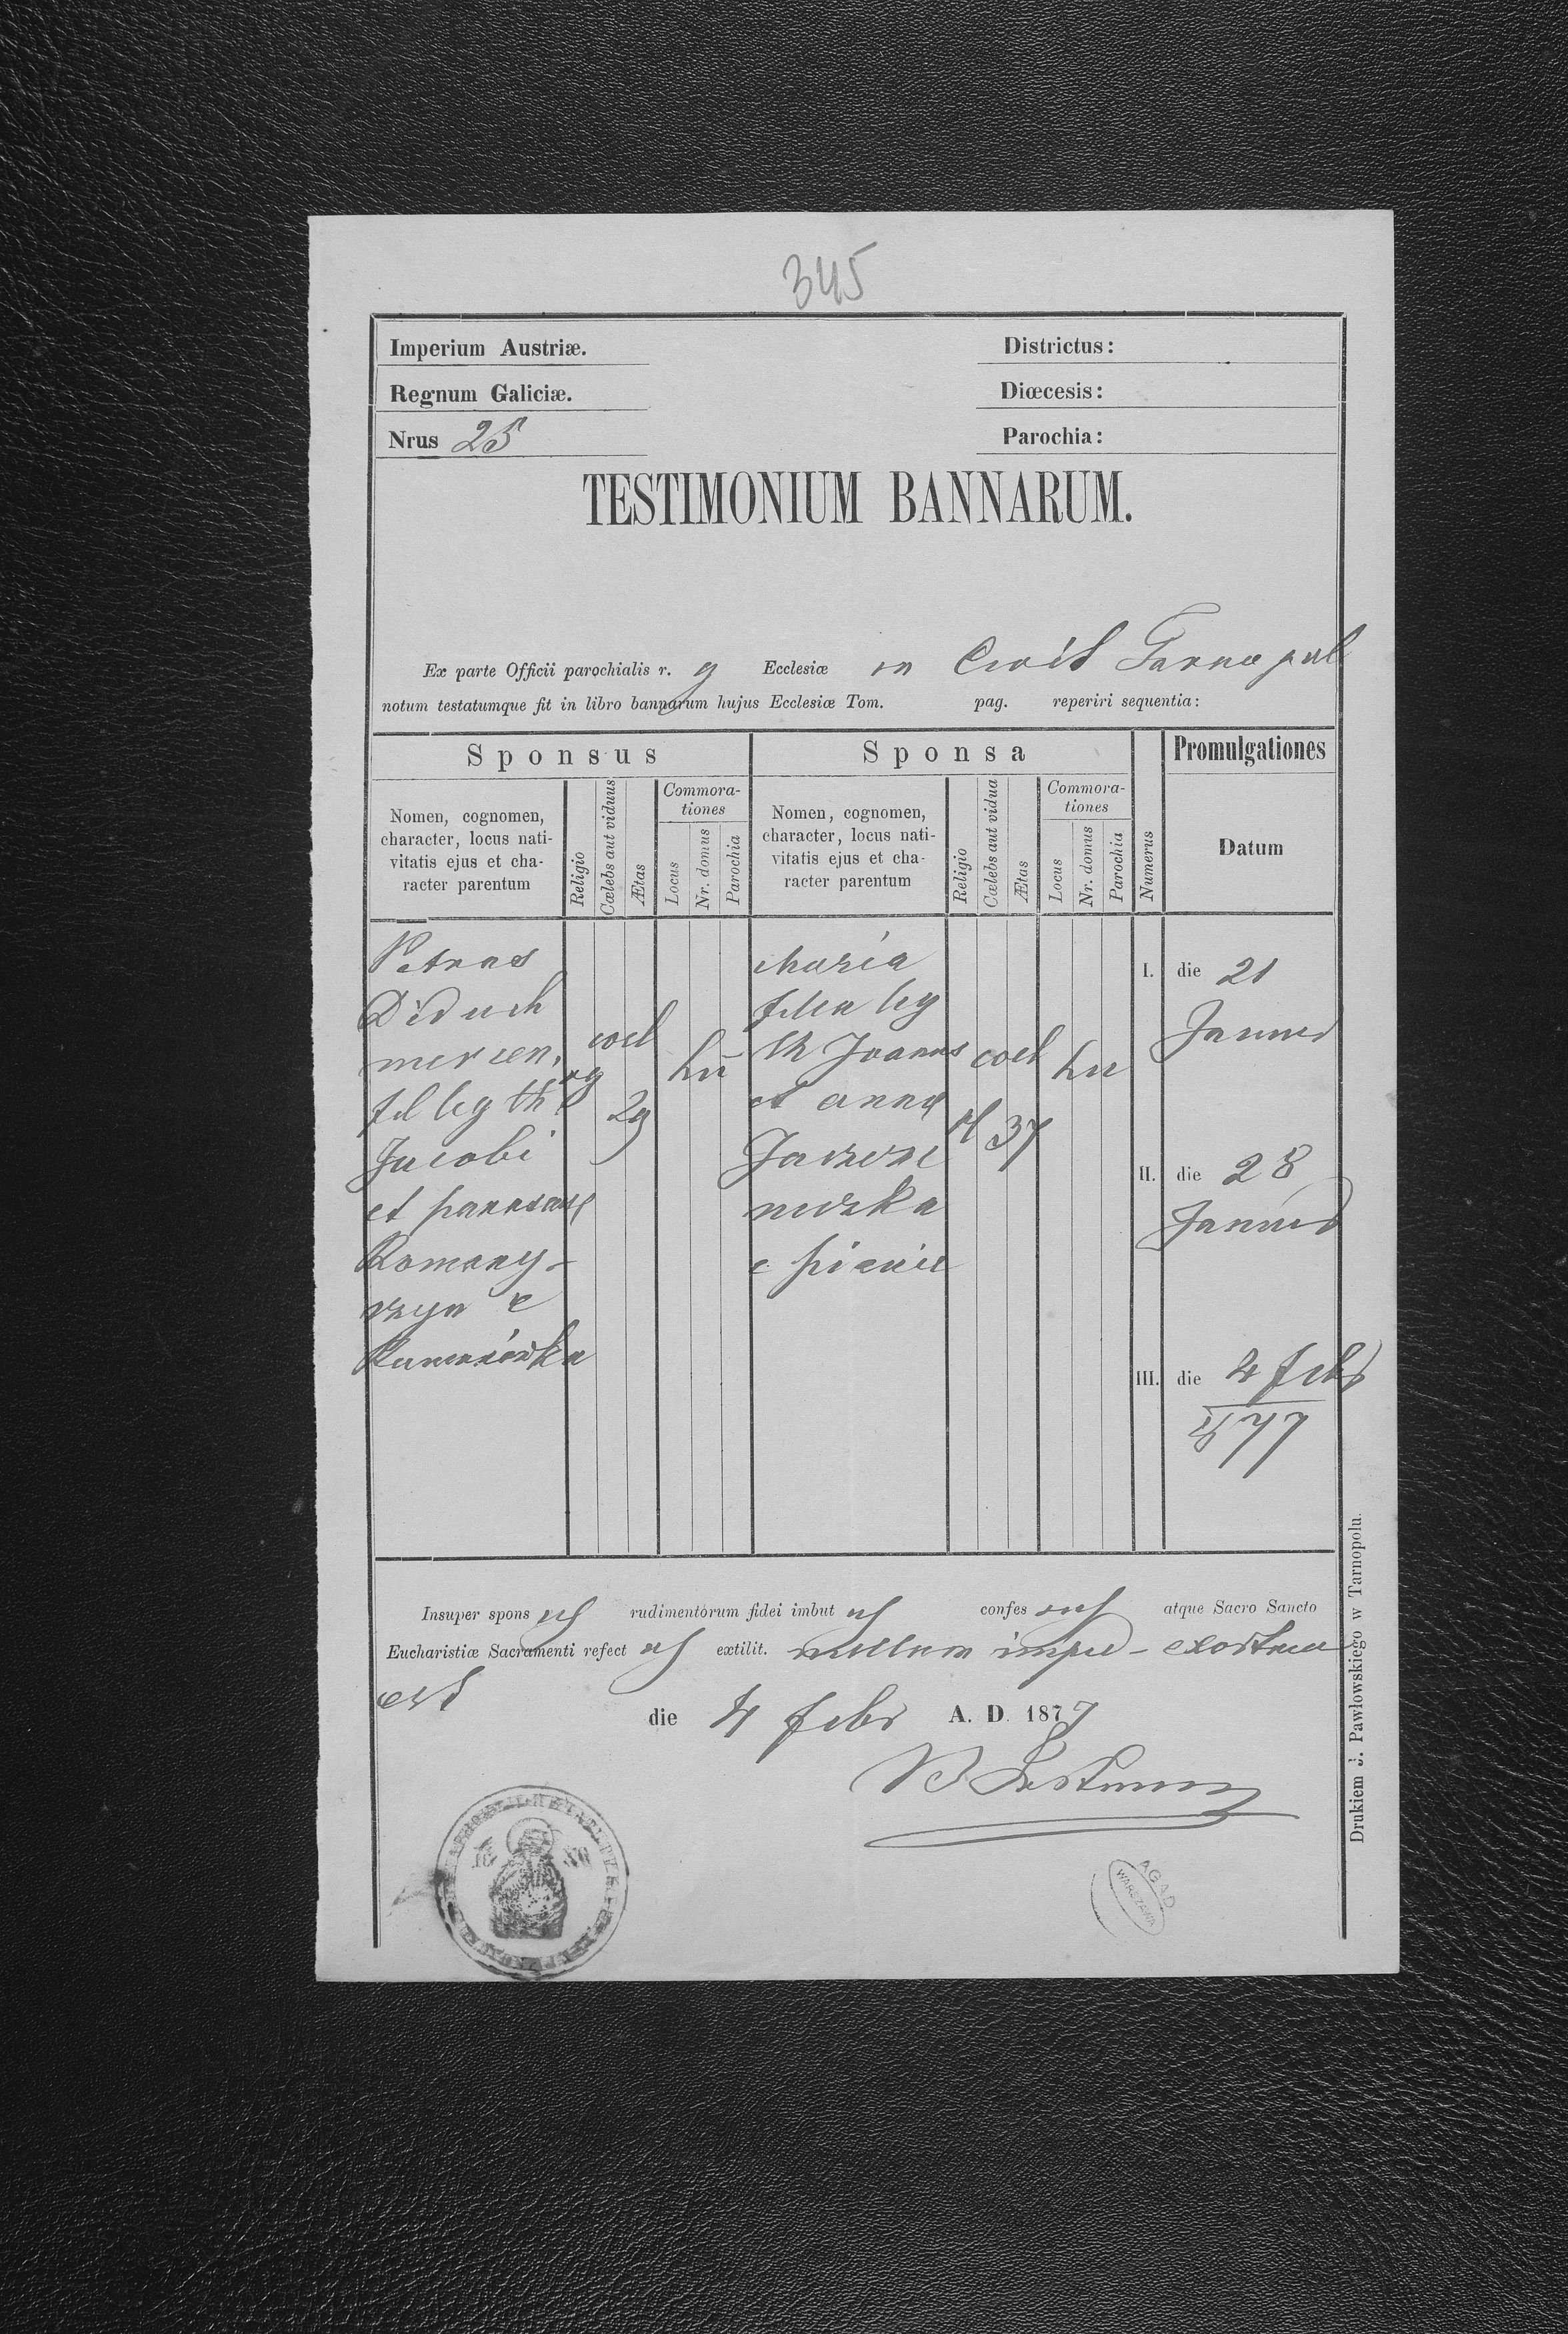 345
Imperium Austriæ.
Districtus:
Regnum Galiciæ.
Diœcesis:
Nrus 25
Parochia:
TESTIMONIUM BANNARUM.
Ex parte Officii parochialis r. g Ecclesiæ in Civit Tarnopol
notum testatumque fit in libro bannarum hujus Ecclesiæ Tom. pag. reperiri sequentia:
Sponsus
Sponsa
Numerus
Promulgationes
Nomen, cognomen,
character, locus nati-
vitatis ejus et cha-
racter parentum
Religio
Cœlebs aut viduus
Ætas
Commora-
tiones
Locus
Nr. domus
Parochia
Nomen, cognomen,
character, locus nati-
vitatis ejus et cha-
racter parentum
Religio
Cœlebs aut vidua
Ætas
Commora-
tiones
Locus
Nr. domus
Parochia
Datum
Petrus
Diduch
mercen.
fil leg th
Jacobi
et
Romany-
czyn e
rg
coel
29
hic
Maria
filia leg
th Joannis
et Anna
e
rl
coel
37
hic
I. die 21
Januar
II. die 28
Januar
III. die 4 febr
1877
Insuper spons us rudimentorum fidei imbut us confes sus atque Sacro Sancto
Eucharistiæ Sacramenti refect us extilit. nullum imped- exortum
est
die 4 febr A. D. 1877
Drukiem J. Pawłowskiego w Tarnopolu.
AGAD
WARSZAWA